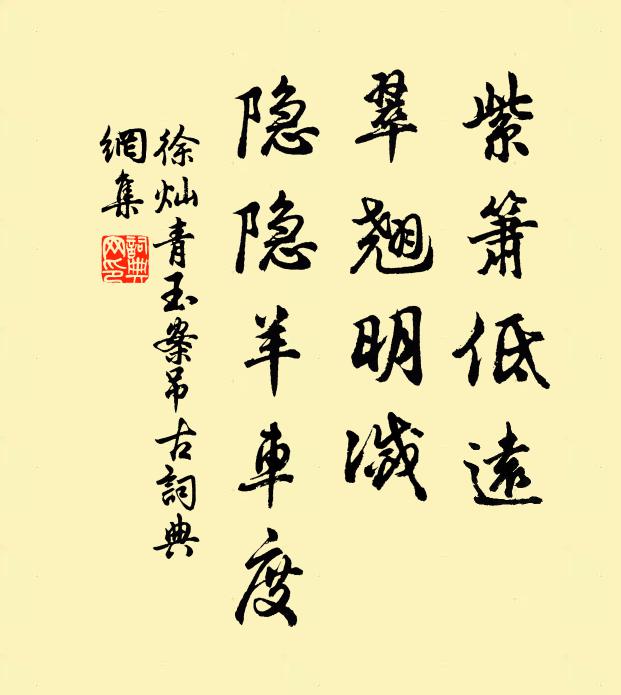 紫箫低遠
翠翘明滅
隐隐羊車度
徐灿青玉案吊古詞典
網集
詞典網印